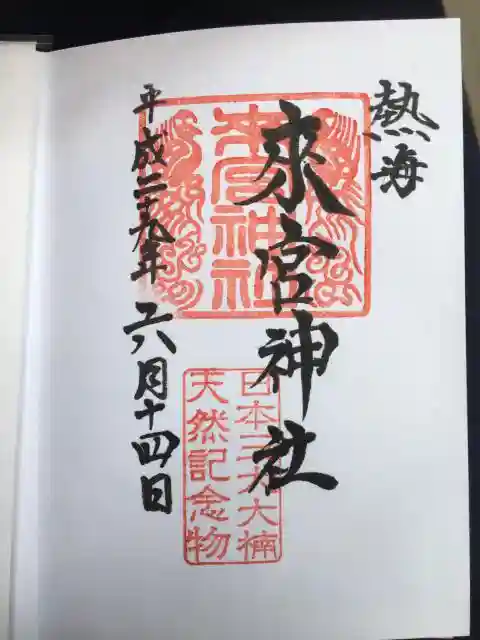 熱海
來宮神社
平成二十九年 六月十四日
来宮神社
日本三大大楠
天然記念物